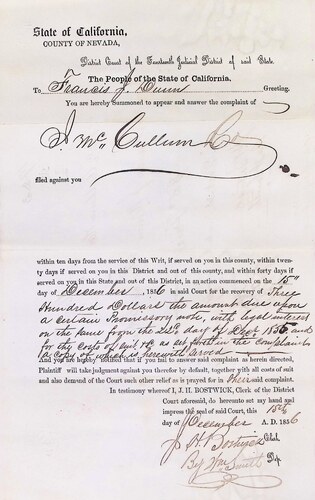 State of California,
COUNTY OF NEVADA,
District Court of the Fourteenth Judicial District of said State.
The People of the State of California.
To Francis J. Dunn Greeting.
You are hereby Summoned to appear and answer the complaint of
J. Mc Cullum Co
filed against you
within ten days from the service of this Writ, if served on you in this county, within twen-
ty days if served on you in this District and out of this county, and within forty days if
served on you in this State and out of this District, in an action commenced on the 15th
day of December, 1856 in said Court for the recovery of Three
Hundred Dollars the amount due upon
a certain Promissory note, with legal interest
on the same from the day of 1856 and
for the costs of suit, &c as set forth in the complaint
a copy of which is herewith served
And you are hereby notified that if you fail to answer said complaint as herein directed,
Plaintiff will take judgment against you therefor by default, together with all costs of suit
and also demand of the Court such other relief as is prayed for in their said complaint.
In testimony whereof I, J. H. BOSTWICK, Clerk of the District
Court aforesaid, do hereunto set my hand and
impress the seal of said Court, this 15th
day of December A. D. 1856
J H Bostwick Clerk.
By Wm Smith Dep.